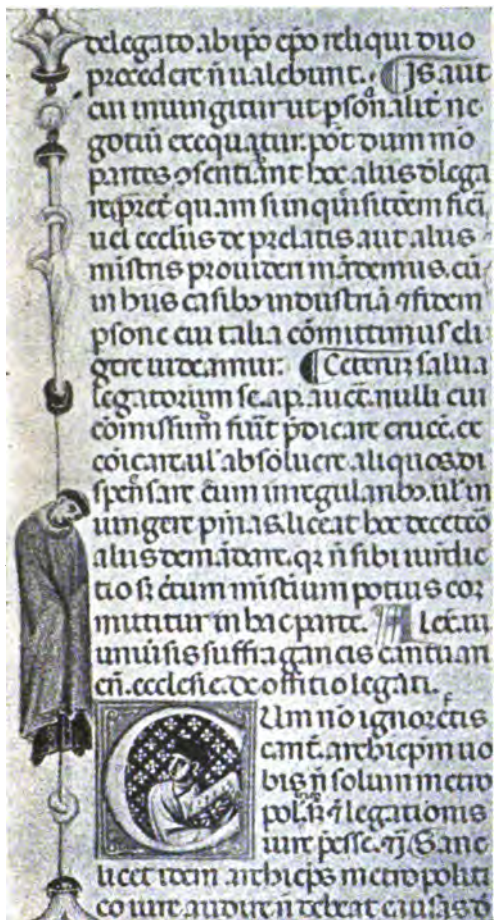 delegato ab ip̄o ep̄o reliqui duo
procedere ñ ualebunt. ¶ Is aut̄
cui iniungitur ut p̱sonalit̄ ne
gotiū exequatur. pōt dum mō
partes ↄsentiant hoc aliis d̄lega
re p̱ret̄ quam si inquisitōem fieri
uel ecclīis de prelatis aut aliis
mīstris prouideri mādemus. cū
in hiis casibꝫ industriā ⁊ fidem
p̱sone cui talia cōmittimus eli
gere uideamur. ¶ Ceterū salua
legatorum se. ap. auct̄. nulli cui
cōmissum fuīt p̄dicare crucē. ex
cōicare. ul' absoluere aliquos. di
spensare etium irregularibꝫ. ul' in
iungere pnīas. liceat hec decetero
aliis demādare. qꝛ ñ sibi iurisdic
tio sꝫ c̄tum mīstium potius com
mittitur in hac parte. Alex̄. iii.
uniūsis suffraganeis cantuari
eñ. ecclesie. de offitio legati.
Cum nō ignoretis
cant̄. archiep̄m uo
bis ñ solum metro
pol. sꝫ ⁊ legationis
iure p̱esse.
licet idem archiep̄s metropoliti
co iure audire ñ debeat causas d̄